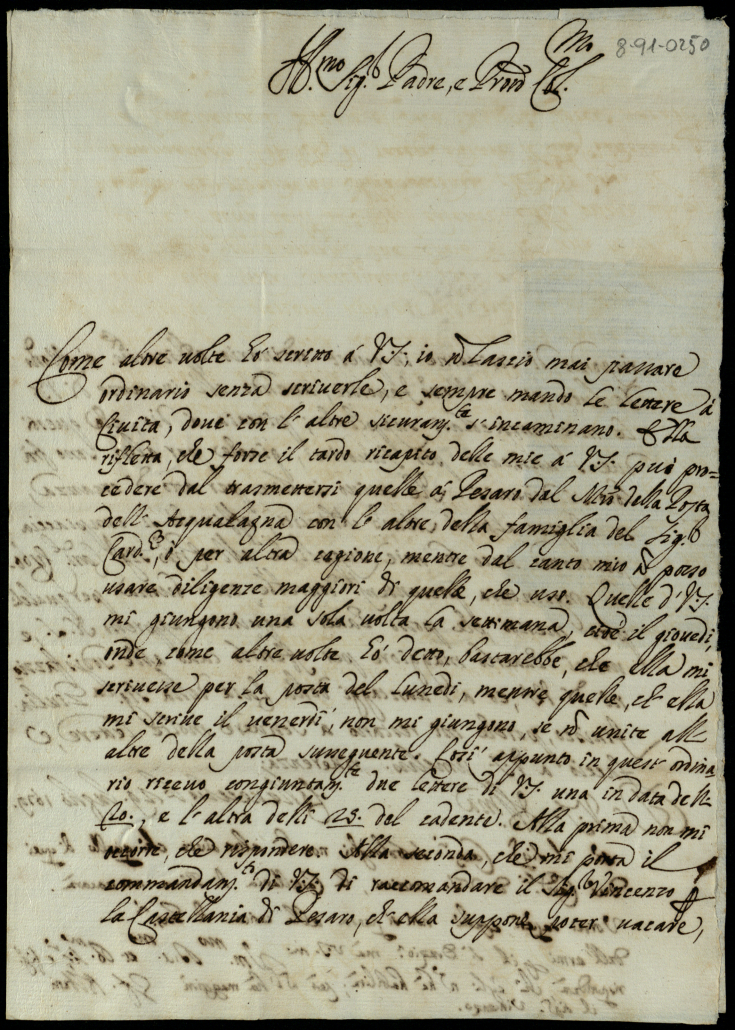 8-91-0250
Ill.mo Sig.r Padre, e Pron Col.mo
Come altre volte hò scritto à V.S., io nō lascio mai passare
ordinario senza scriverle, e sempre mando le lettere à
Civita, dove con l'altre sicuram.te s'incaminano. Ella
rifletta, che forse il tardo ricapito delle mie à V.S. può pro=
cedere dal trasmettersi quelle di Pesaro dal Mro della Posta
dell'Acqualagna con l'altre della famiglia del Sig.r
Card.e, ò per altra cagione, mentre dal canto mio nō posso
usare diligenze maggiori di quelle, che uso. Quelle d'V.S.
mi giungono una sola volta la settimana, cioè il giovedì,
onde, come altre volte hò detto, bastarebbe, che ella mi
scrivesse per la posta del Lunedì, mentre quelle, ch'ella
mi scrive il venerdì, non mi giungono, se nō unite alle
altre della posta susseguente. Così appunto in quest'ordina=
rio ricevo congiuntam.te due lettere di V.S. una in data delli
20., e l'altra delli 25. del cadente. Alla prima non mi
occorre, che rispondere. Alla seconda, che mi porta il
commandam.to di V.S. di raccomandare il Sig.r Vincenzo p
la Castellania di Pesaro, ch'ella suppone poter vacare,